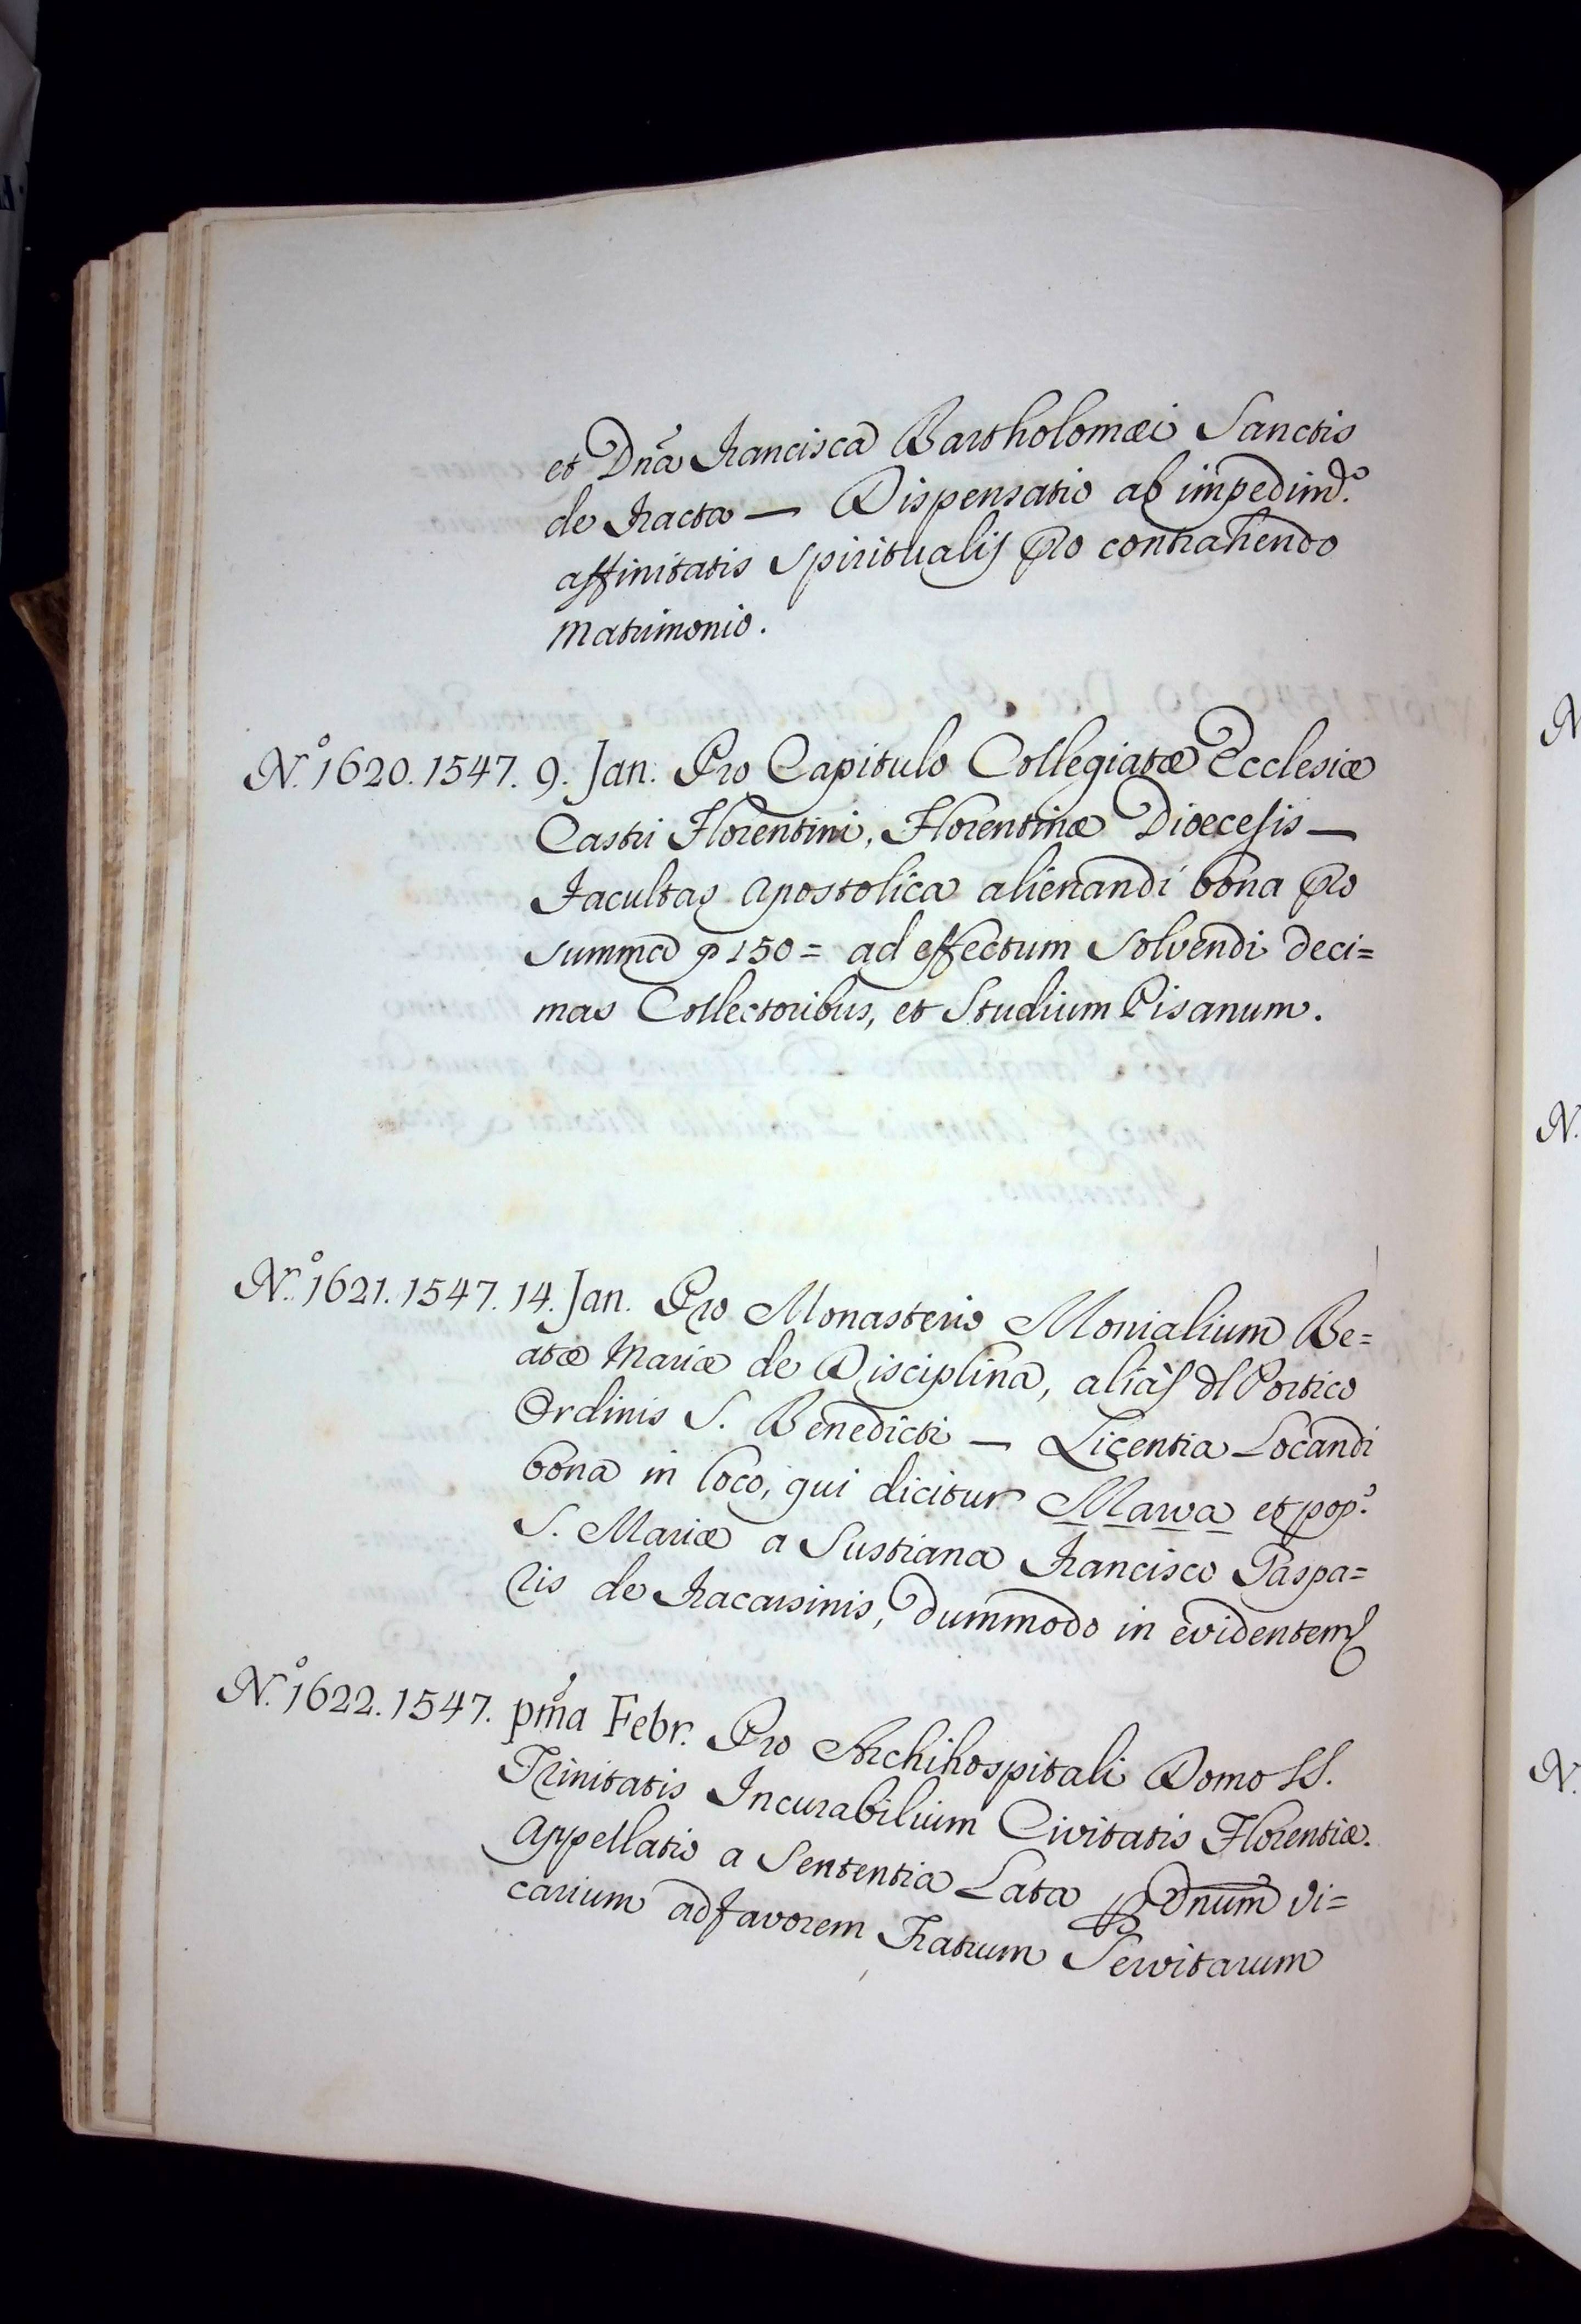 et Dña Francisca Bartholomæi Sanctis
de Fracta — Dispensatio ab impedim.º
affinitatis spiritualis pro contrahendo
Matrimonio.
N.º 1620. 1547. 9. Jan. Pro Capitulo Collegiatæ Ecclesiæ
Castri Florentini, Florentinæ Dioecesis —
Facultas Apostolica alienandi bona pro
summa 150 = ad effectum solvendi deci=
mas Collectoribus, et Studium Pisanum.
N.º 1621. 1547. 14. Jan. Pro Monasterio Monialium Be=
atæ Mariæ de Disciplina, aliàs dl Portico
Ordinis S. Benedicti — Licentia Locandi
bona in loco, qui dicitur Marva et pop.º
S. Mariæ a Sustiana Francisco Gaspa=
ris de Fracassinis, dummodo in evidentem
N.º 1622. 1547. pma Febr. Pro Archihospitali Domo SS.
Trinitatis Incurabilium Civitatis Florentiæ.
Appellatio a Sententia Lata per Dnum Vi=
carium ad favorem Fratrum Servitarum